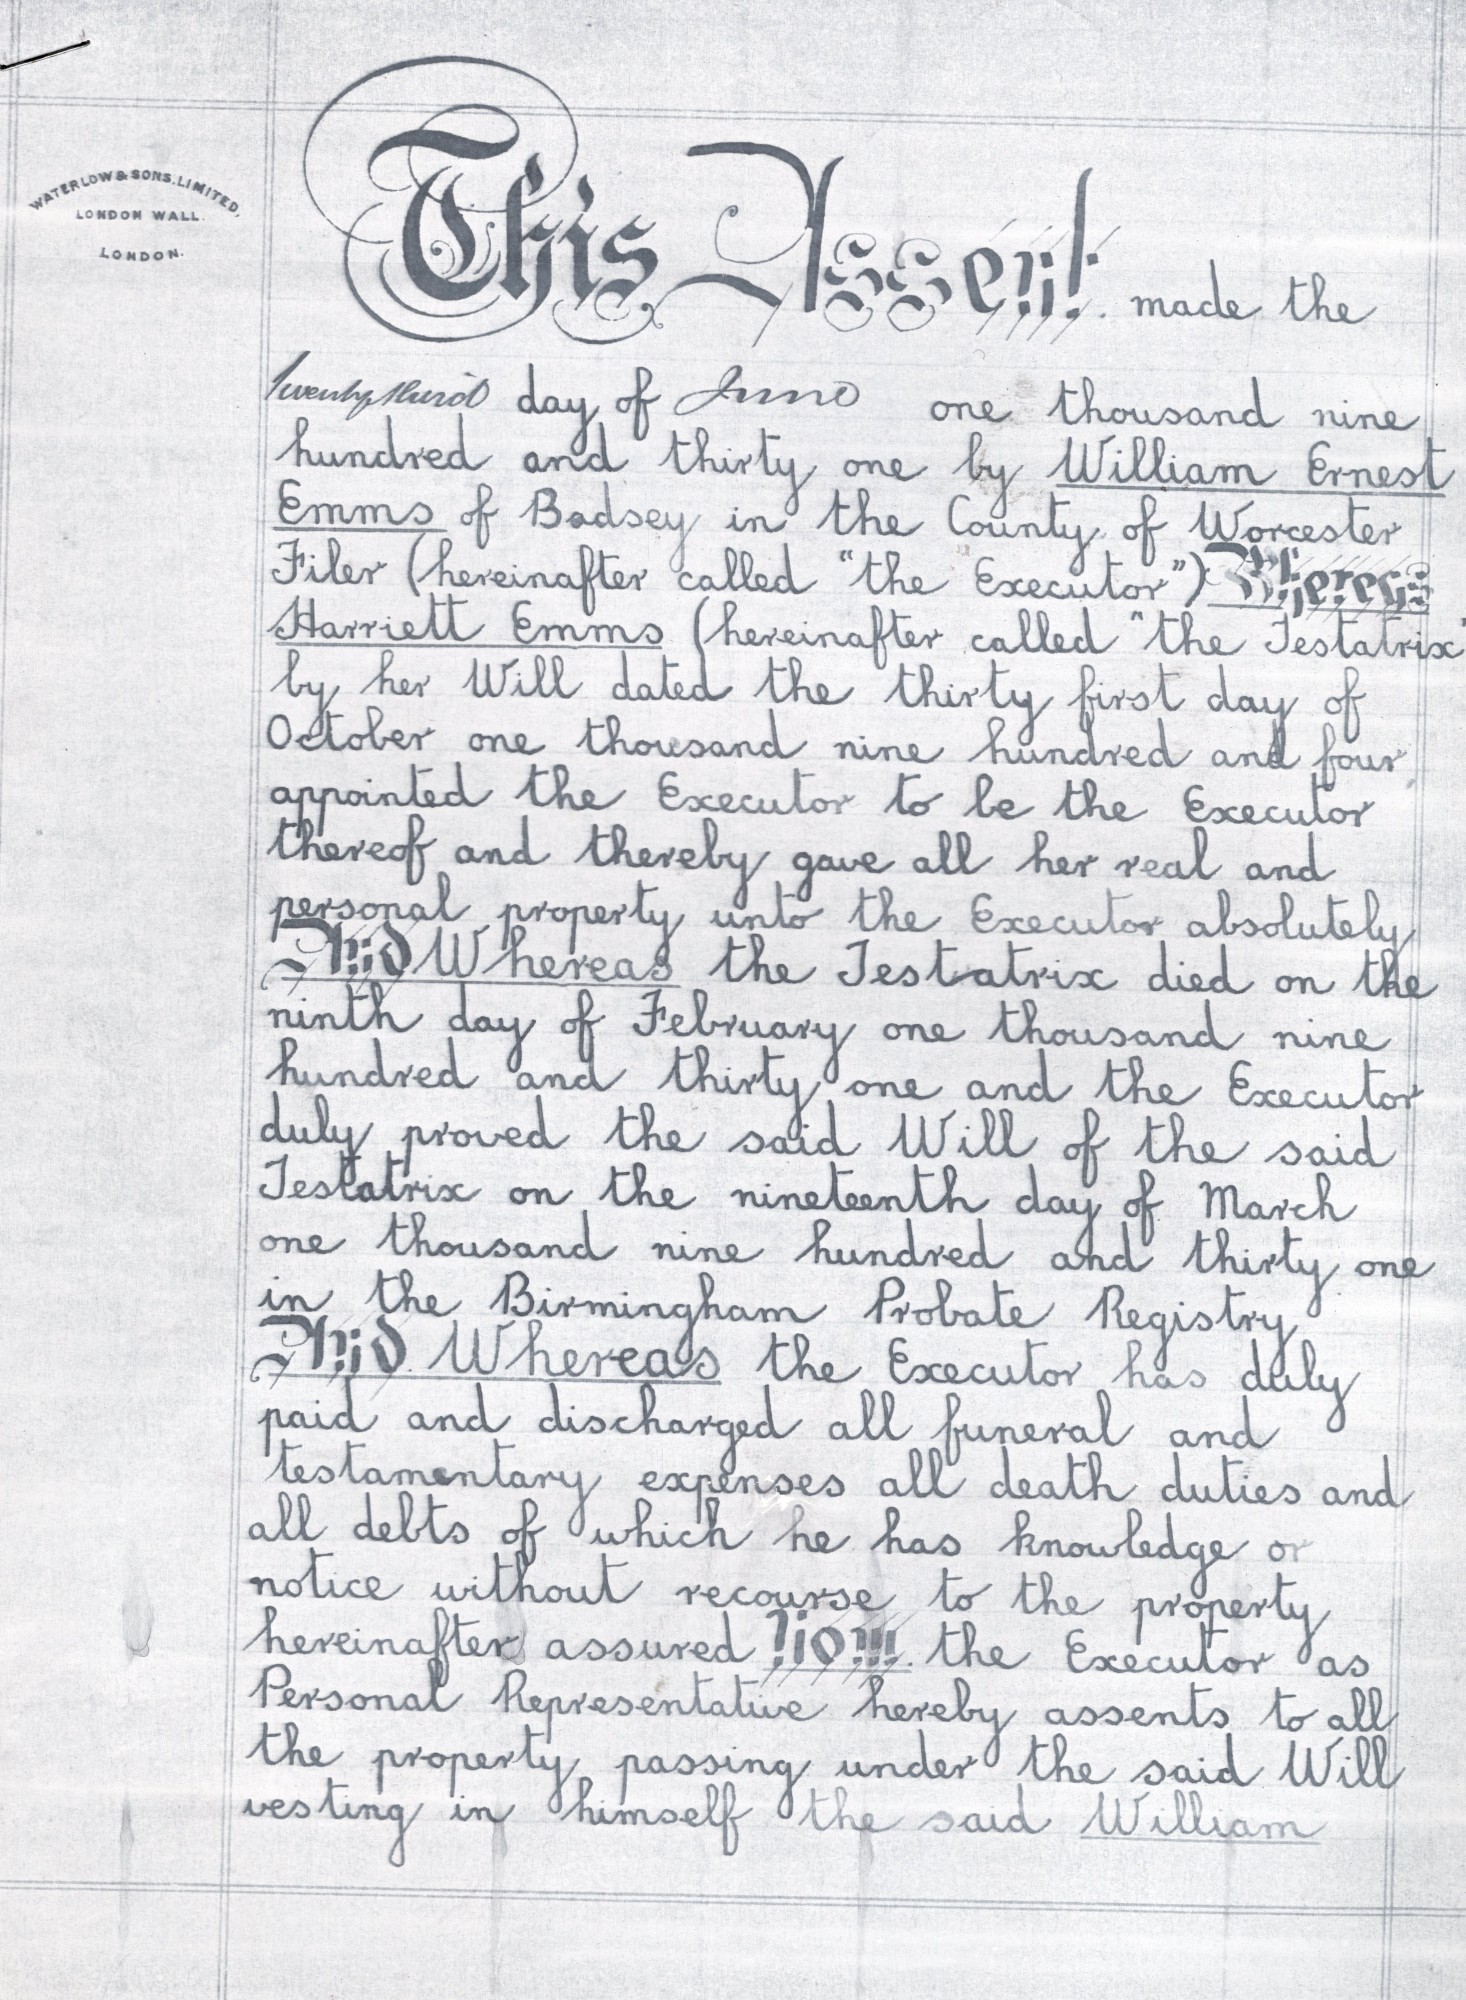 WATERLOW & SONS, LIMITED,
LONDON WALL.
LONDON.
This Assent made the
Twenty third day of June one thousand nine
hundred and thirty one by William Ernest
Emms of Badsey in the County of Worcester
Filer (hereinafter called "the Executor") Whereas
Harriett Emms (hereinafter called "the Testatrix"
by her Will dated the thirty first day of
October one thousand nine hundred and four
appointed the Executor to be the Executor
thereof and thereby gave all her real and
personal property unto the Executor absolutely
And Whereas the Testatrix died on the
ninth day of February one thousand nine
hundred and thirty one and the Executor
duly proved the said Will of the said
Testatrix on the nineteenth day of March
one thousand nine hundred and thirty one
in the Birmingham Probate Registry
And Whereas the Executor has duly
paid and discharged all funeral and
testamentary expenses all death duties and
all debts of which he has knowledge or
notice without recourse to the property
hereinafter assured Now the Executor as
Personal Representative hereby assents to all
the property passing under the said Will
vesting in himself the said William